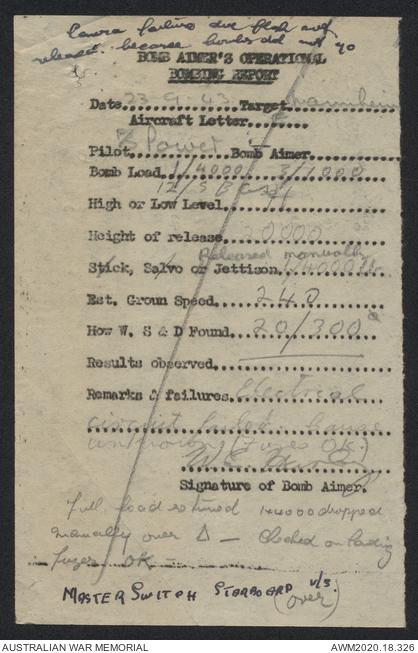 Camera failure due flash not
released because bombs did not go
BOMB AIMER'S OPERATIONAL
BOMBING REPORT
Date 23.9.43 Target Mannheim
Aircraft Letter
Pilot Power Bomb Aimer
Bomb Load 1/4000 3/1000
12/SBC
High or Low Level
Height of release 20000
Released manually
Stick, Salvo or Jettison 1/4000 lb.
Est. Groun Speed 240
How W. S & D Found 20/300°
Results observed
Remarks & failures Electrical
circuit failed cause
unknown (Fuzes OK.)
Signature of Bomb Aimer.
Full load returned 1x4000 dropped
manually over Δ — Checked on landing
fuzes OK —
MASTER SWITCH STARBOARD U/S.
(over)
AUSTRALIAN WAR MEMORIAL
AWM2020.18.326